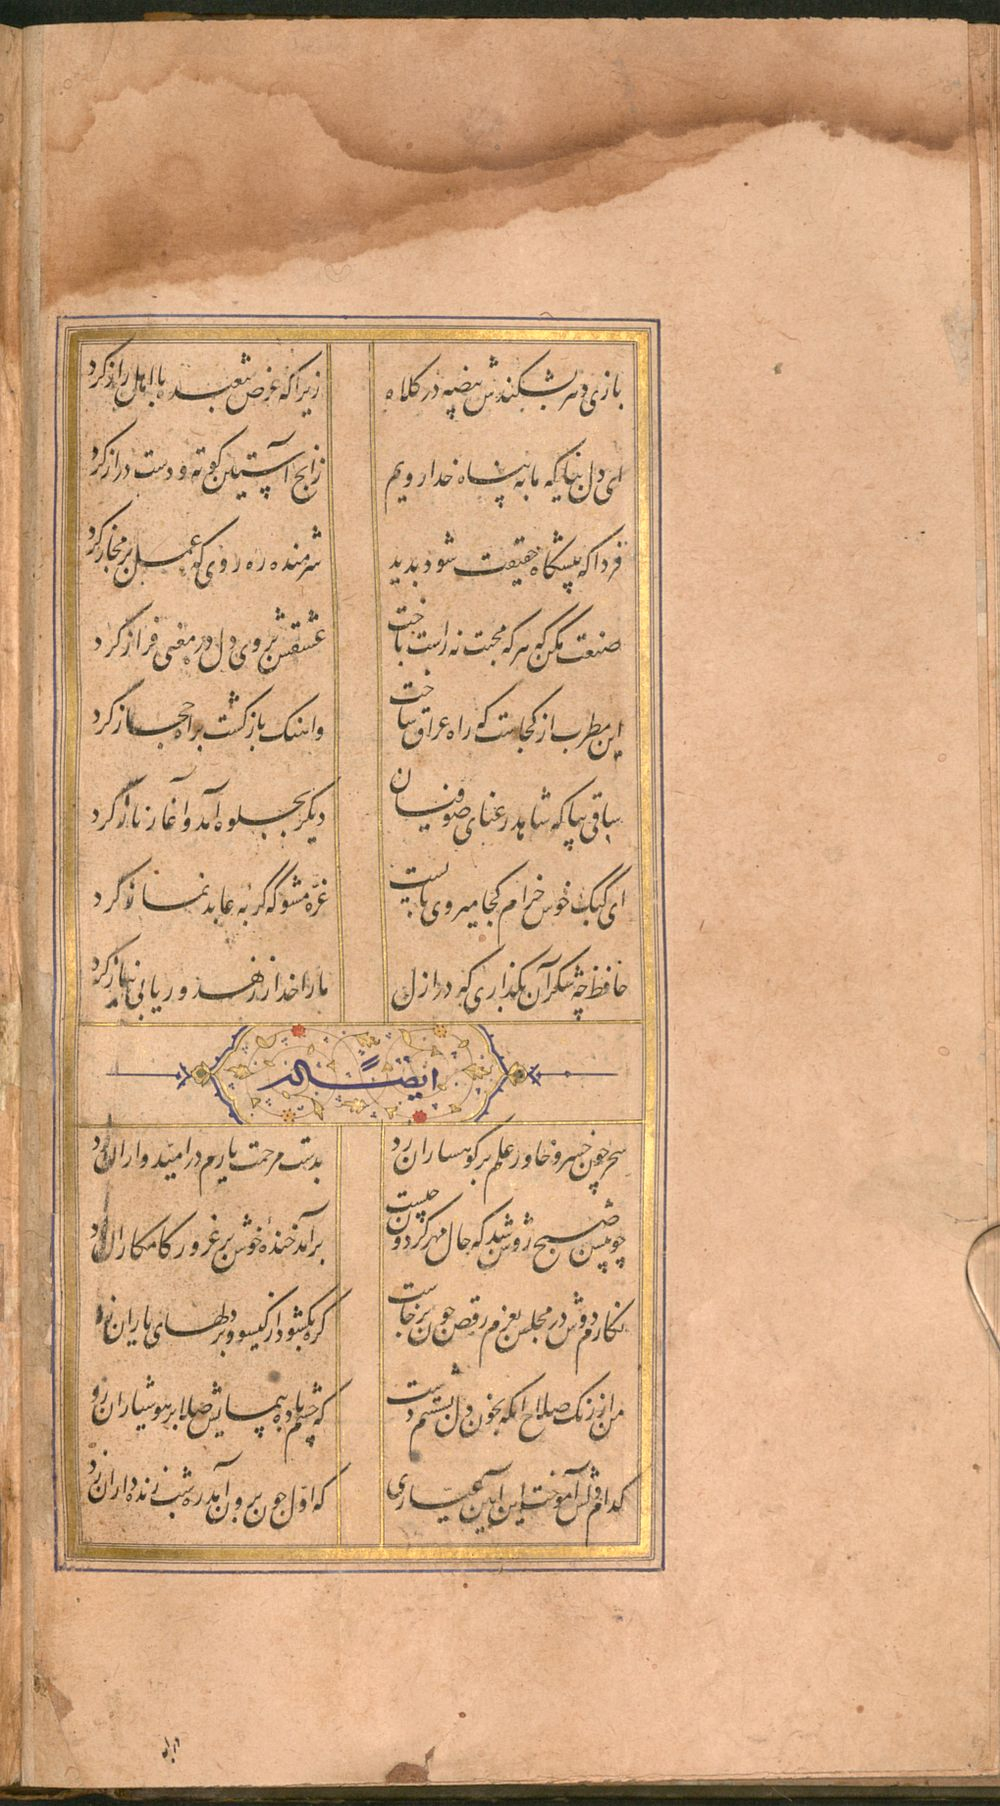 بازی دهر بشکندش بیضه در کلاه
زیرا که عرض شعبده با اهل راز کرد
ای دل بیا که ما به پناه خدا رویم
زانچ آستین کوته و دست دراز کرد
فردا که پیشگاه حقیقت شود پدید
شرمنده ره روی که عمل بر مجاز کرد
صنعت مکن که هر که محبت نه راست باخت
عشقش بروی دل در معنی فراز کرد
این مطرب از کجاست که راه عراق ساخت
واهنک بازکشت براه حجاز کرد
ساقی بیا که شاهد رعنای صوفیان
دیکر بجلوه آمد و آغاز ناز کرد
ای کبک خوش خرام کجا میروی بایست
غره مشو که گربه عابد نماز کرد
حافظ چه شکر آن بگذاری که در ازل
ما را خدا ز زهد و ریا بی نیاز کرد
ایضاً له
سحر چون خسرو خاور علم بر کوهساران زد
بدست مرحمت یارم در امیدواران زد
چو پیش صبح روشن شد که حال مهر کردون چیست
برآمد خنده خوش بر غرور کامکاران زد
نکارم دوش در مجلس بعزم رقص چون برخاست
گره بکشود از کیسو و بر دلهای یاران زد
من از رنک صلاح انکه بخون دل بشستم دست
که چشم باده پیمایش صلا بر هوشیاران زد
کدام آموخت این آیین عیاری
که اول چون برون آمد ره شب زنده داران زد